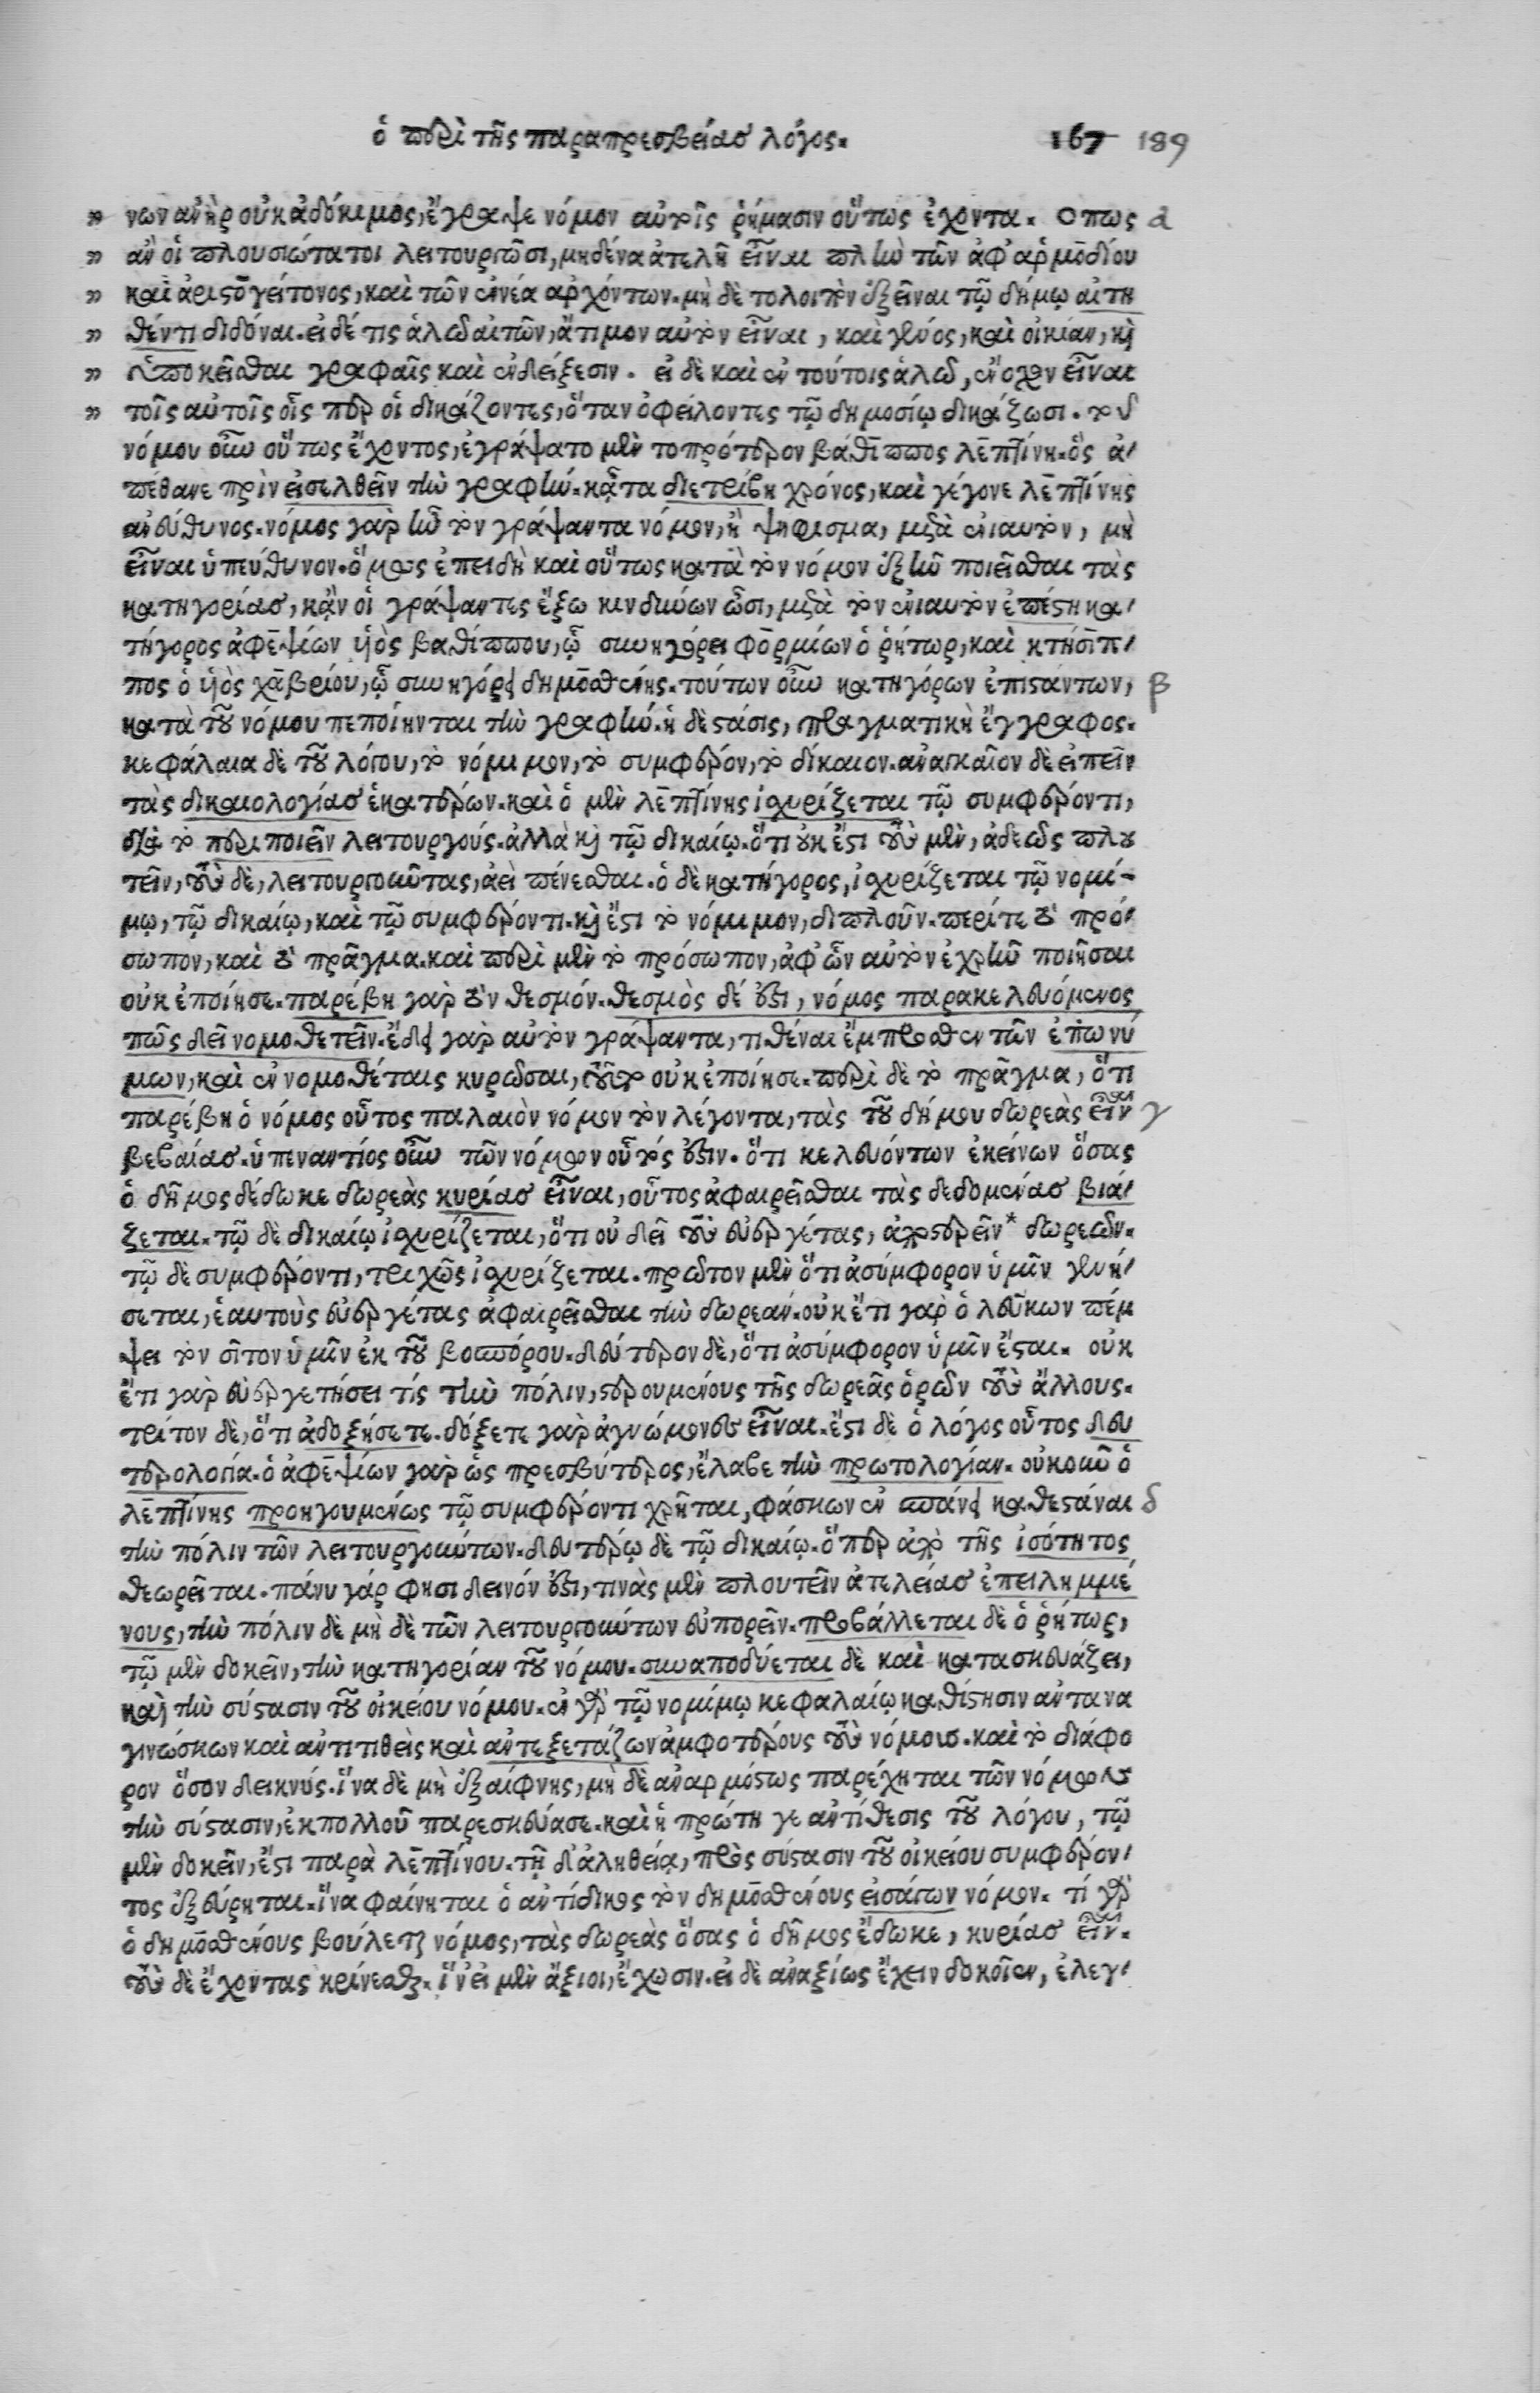 ὁ περὶ τῆς παραπρεσβείας λόγος. 167 189
" νων ἀνὴρ οὐκ ἀδόκιμος, ἔγραψε νόμον αὐτοῖς ῥήμασιν οὕτως ἔχοντα. Οπως α
" ἂν οἱ πλουσιώτατοι λειτουργῶσι, μηδένα ἀτελῆ εἶναι πλὴν τῶν ἀφ' ἁρμοδίου
" καὶ ἀριστογείτονος, καὶ τῶν ἐννέα ἀρχόντων. μὴ δὲ τολοιπὸν ἐξεῖναι τῷ δήμῳ αἰτη
" θέντι διδόναι. εἰ δέ τις ἁλῶ αἰτῶν, ἄτιμον αὐτὸν εἶναι, καὶ γένος, καὶ οἰκίαν, καὶ
" ὑποκεῖσθαι γραφαῖς καὶ ἐνδείξεσιν. εἰ δὲ καὶ ἐν τούτοις ἁλῶ, ἔνοχον εἶναι
" τοῖς αὐτοῖς οἷς περ οἱ δικάζοντες, ὅταν ὀφείλοντες τῷ δημοσίῳ δικάζωσι. τοῦ
νόμου οὖν οὕτως ἔχοντος, ἐγράψατο μὲν τοπρότερον βάθιππος λεπτίνη. ὃς ἀ-
πέθανε πρὶν εἰσελθεῖν τὴν γραφήν. κᾆτα διετρίβη χρόνος, καὶ γέγονε λεπτίνης
ἀνεύθυνος. νόμος γὰρ ἦν τὸν γράψαντα νόμον, ἢ ψήφισμα, μετὰ ἐνιαυτὸν, μὴ
εἶναι ὑπεύθυνον. ὅμως ἐπειδὴ καὶ οὕτως κατὰ τὸν νόμον ἐξῆν ποιεῖσθαι τὰς
κατηγορίας, κἂν οἱ γράψαντες ἔξω κινδύνων ὦσι, μετὰ τὸν ἐνιαυτὸν ἐπέστη κα-
τήγορος ἀφεψίων υἱὸς βαθίππου, ᾧ συνηγόρει φορμίων ὁ ῥήτωρ, καὶ κτήσιπ-
πος ὁ υἱὸς χαβρίου, ᾧ συνηγόρει δημοσθένης. τούτων οὖν κατηγόρων ἐπιστάντων, β
κατὰ τοῦ νόμου πεποίηνται τὴν γραφήν. ἡ δὲ στάσις, πραγματικὴ ἔγγραφος.
κεφάλαια δὲ τοῦ λόγου, τὸ νόμιμον, τὸ συμφέρον, τὸ δίκαιον. ἀναγκαῖον δὲ εἰπεῖν
τὰς δικαιολογίας ἑκατέρων. καὶ ὁ μὲν λεπτίνης ἰσχυρίζεται τῷ συμφέροντι,
διὰ τὸ περιποιεῖν λειτουργούς. ἀλλὰ καὶ τῷ δικαίῳ. ὅτι οὐκ ἔστι τοὺς μὲν, ἀδεῶς πλου
τεῖν, τοὺς δὲ, λειτουργοῦντας, ἀεὶ πένεσθαι. ὁ δὲ κατήγορος, ἰσχυρίζεται τῷ νομί-
μῳ, τῷ δικαίῳ, καὶ τῷ συμφέροντι. καὶ ἔστι τὸ νόμιμον, διπλοῦν. περίτε τὸ πρό-
σωπον, καὶ τὸ πρᾶγμα. καὶ περὶ μὲν τὸ πρόσωπον, ἀφ' ὧν αὐτὸν ἐχρῆν ποιῆσαι
οὐκ ἐποίησε. παρέβη γὰρ τὸν θεσμόν. θεσμὸς δέ ἐστι, νόμος παρακελευόμενος
πῶς δεῖ νομοθετεῖν. ἔδει γὰρ αὐτὸν γράψαντα, τιθέναι ἔμπροσθεν τῶν ἐπωνύ
μων, καὶ ἐν νομοθέταις κυρῶσαι, τοῦτο οὐκ ἐποίησε. περὶ δὲ τὸ πρᾶγμα, ὅτι
παρέβη ὁ νόμος οὗτος παλαιὸν νόμον τὸν λέγοντα, τὰς τοῦ δήμου δωρεὰς εἶναι γ
βεβαίας. ὑπεναντίος οὖν τῶν νόμων οὗτός ἐστιν. ὅτι κελευόντων ἐκείνων ὅσας
ὁ δῆμος δέδωκε δωρεὰς κυρίας εἶναι, οὗτος ἀφαιρεῖσθαι τὰς δεδομένας βιά-
ζεται. τῷ δὲ δικαίῳ ἰσχυρίζεται, ὅτι οὐ δεῖ τοὺς εὐεργέτας, ἀποστερεῖν* δωρεῶν.
τῷ δὲ συμφέροντι, τριχῶς ἰσχυρίζεται. πρῶτον μὲν ὅτι ἀσύμφορον ὑμῖν γενή-
σεται, ἑαυτοὺς εὐεργέτας ἀφαιρεῖσθαι τὴν δωρεάν. οὐκ ἔτι γὰρ ὁ λεύκων πέμ
ψει τὸν σῖτον ὑμῖν ἐκ τοῦ βοσπόρου. δεύτερον δὲ, ὅτι ἀσύμφορον ὑμῖν ἔσται. οὐκ
ἔτι γὰρ εὐεργετήσει τίς τὴν πόλιν, στερουμένους τῆς δωρεᾶς ὁρῶν τοὺς ἄλλους.
τρίτον δὲ, ὅτι ἀδοξήσετε. δόξετε γὰρ ἀγνώμονες εἶναι. ἔστι δὲ ὁ λόγος οὗτος δευ
τερολογία. ὁ ἀφεψίων γὰρ ὡς πρεσβύτερος, ἔλαβε τὴν πρωτολογίαν. οὐκοῦν ὁ
λεπτίνης προηγουμένως τῷ συμφέροντι χρῆται, φάσκων ἐν σπάνει καθεστάναι δ
τὴν πόλιν τῶν λειτουργούντων. δευτέρῳ δὲ τῷ δικαίῳ. ὅπερ ἀπὸ τῆς ἰσότητος
θεωρεῖται. πάνυ γάρ φησι δεινόν ἐστι, τινὰς μὲν πλουτεῖν ἀτελείας ἐπειλημμέ
νους, τὴν πόλιν δὲ μὴ δὲ τῶν λειτουργούντων εὐπορεῖν. προβάλλεται δὲ ὁ ῥήτωρ,
τῷ μὲν δοκεῖν, τὴν κατηγορίαν τοῦ νόμου. συναποδύεται δὲ καὶ κατασκευάζει,
καὶ τὴν σύστασιν τοῦ οἰκείου νόμου. ἐν γὰρ τῷ νομίμῳ κεφαλαίῳ καθίστησιν αὐτὰ ἀνα
γινώσκων καὶ ἀντιτιθεὶς καὶ ἀντεξετάζων ἀμφοτέρους τοὺς νόμους. καὶ τὸ διάφο
ρον ὅσον δεικνύς. ἵνα δὲ μὴ ἐξαίφνης, μὴ δὲ ἀναρμόστως παρέχηται τῶν νόμων
τὴν σύστασιν, ἐκπολλοῦ παρεσκεύασε. καὶ ἡ πρώτη γε ἀντίθεσις τοῦ λόγου, τῷ
μὲν δοκεῖν, ἔστι παρὰ λεπτίνου. τῇ δ' ἀληθείᾳ, πρὸς σύστασιν τοῦ οἰκείου συμφέρον-
τος ἐξεύρηται. ἵνα φαίνηται ὁ ἀντίδικος τὸν δημοσθένους εἰσάγων νόμον. τί γὰρ
ὁ δημοσθένους βούλεται νόμος, τὰς δωρεὰς ὅσας ὁ δῆμος ἔδωκε, κυρίας εἶναι.
τοὺς δὲ ἔχοντας κρίνεσθαι. ἵν' εἰ μὲν ἄξιοι, ἔχωσιν. εἰ δὲ ἀναξίως ἔχειν δοκοῖεν, ἐλεγ-